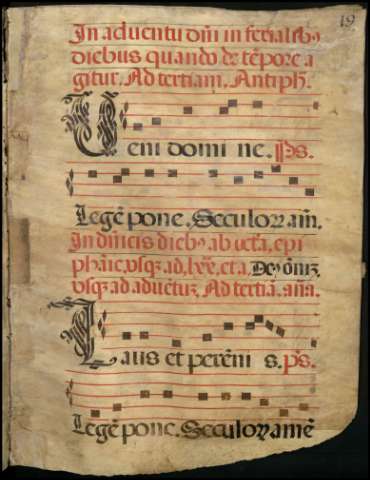 19
In aduentu dñi in ferialib9
diebus quando de tẽpore a
gitur. Ad tertiam. Antiph.
Ueni domi ne. Ps.
Legẽ pone. Seculorꝝ am̃.
In dñicis dieb9 ab octa. epi
phãie, vsqʒ ad, lxx̃, et a. De9 õniũʒ
vsqʒ ad aduẽtuʒ. Ad tertiã. añã.
Laus et perẽni s. ps.
Legẽ pone. Seculorꝝ amẽ